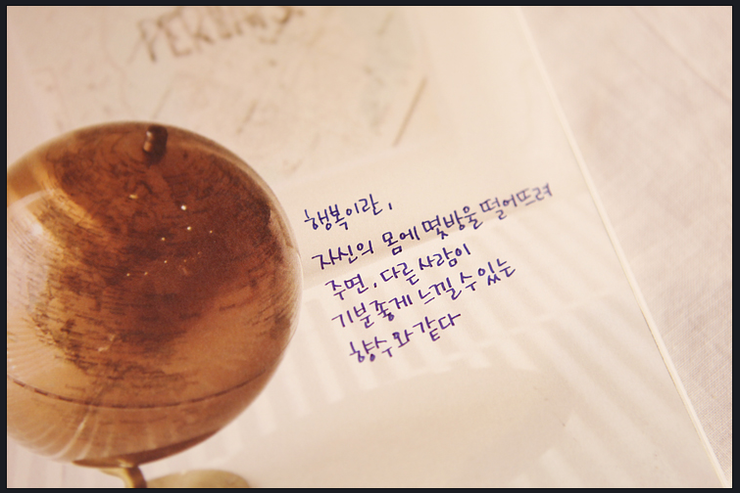 행복이란,
자신의 몸에 몇방울 떨어뜨려
주면, 다른 사람이
기분좋게 느낄 수 있는
향수와 같다